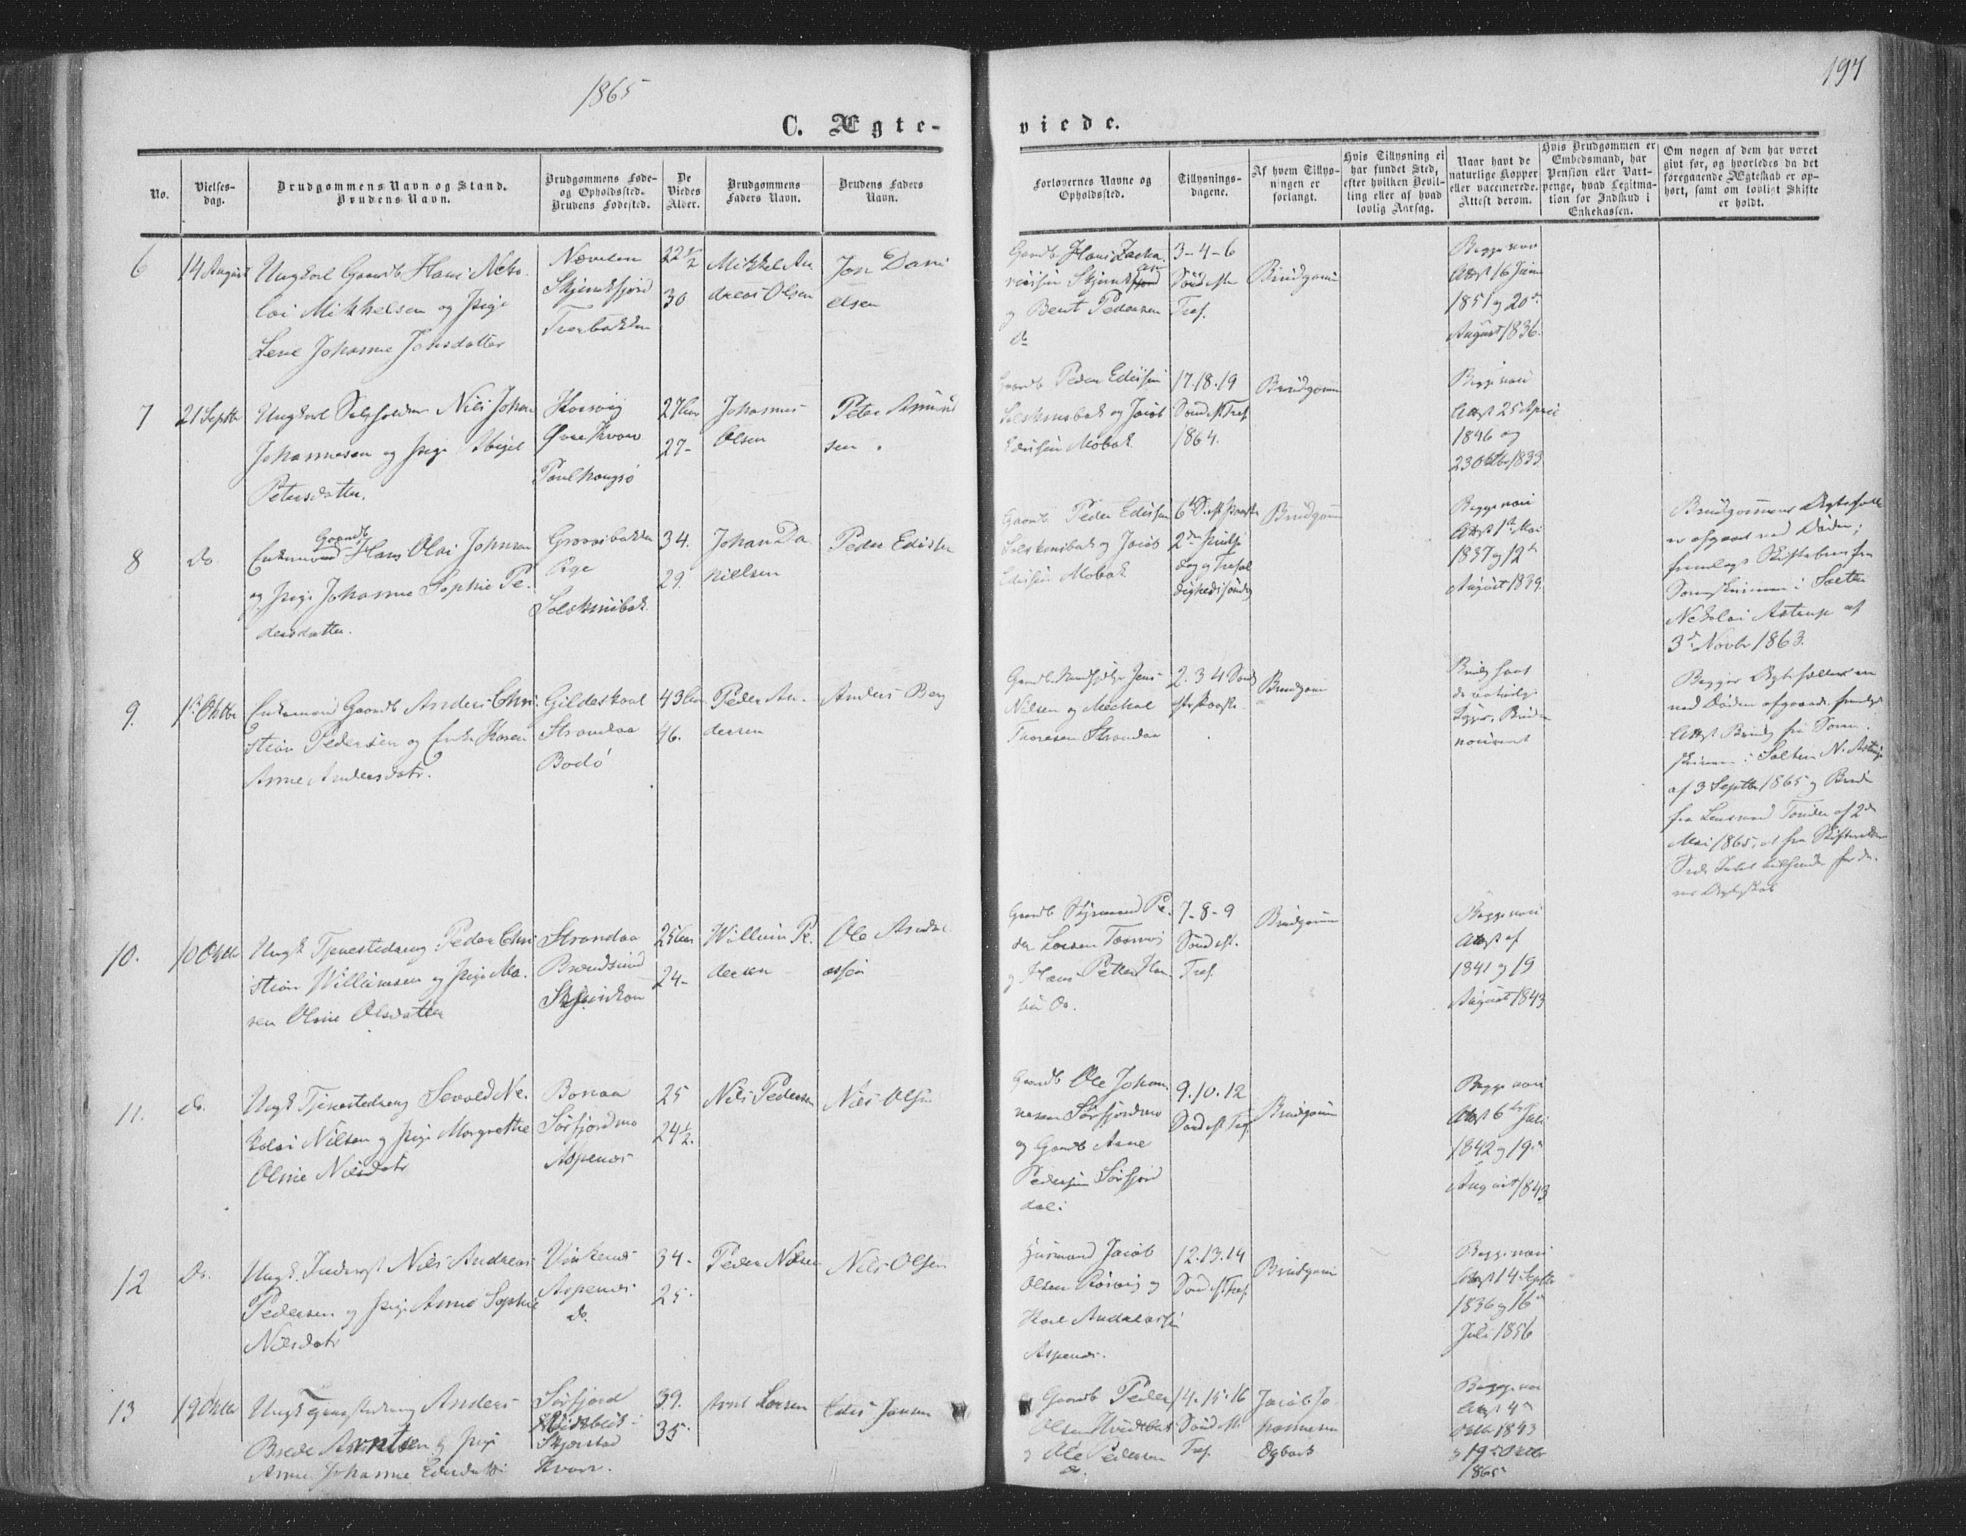 1865
197
C. Ægteviede.
No.
Vielses-
dag.
Brudgommens Navn og Stand.
Brudens Navn.
Brudgommens Føde-
og Opholdssted.
Brudens Fødested.
De
Viedes
Alder.
Brudgommens
Faders Navn.
Brudens Faders
Navn.
Forlovernes Navne og
Opholdssted.
Tillysnings-
dagene.
Af hvem Tillys-
ningen er
forlangt.
Hvis Tillysning ei
har fundet Sted,
efter hvilken Bevil-
ling eller af hvad
lovlig Aarsag.
Naar havt de
naturlige Kopper
eller vaccinerede.
Attest derom.
Hvis Brudgommen er
Embedsmand, har
Pension eller Vart-
penge, hvad Legitima-
tion for Indskud i
Enkekassen.
Om nogen af dem har været
gift før, og hvorledes da det
foregaaende Ægteskab er op-
hørt, samt om lovligt Skifte
er holdt.
6
14 August
Ungkarl Gaardb Hans Neko-
lai Mikkelsen og Pige
Lene Johanne Jonsdatter
Nævelen
Skjerstfjord
Tverbakken
22 1/2
30
Mikkel An
dreas Olsen
Jon Dani
elsen
Gaardb Hans Zacha
riasen
og Bent Pedersen
Do
3-4-6
Sønd efter
Tref.
Brudgom
Begge vac
Attest 16 Juni
1851 og 20de
August 1836.
7
21 Septbr
Ungkarl Niels Johan
Johannesen og Pige
Petersdatter.
Øvre Kvarv
27 Aar
27-
Johannes
Olsen
Peter Amund
sen.
Gaardb Peder Edisen
Solskinsbak og Jacob
Edisen Mobak
17.18.19
Sønd ef Tref.
1864.
Brudgom
Begge vac
Attest 25 April
1846 og
23 Oktbr 1833
8
do
Enkemand Gaardb Hans Olai Johnsen
og Pige Johanne Sophie Pe-
dersdatter.
Solskinsbak
34.
29.
Johan Da
nielsen
Peder Edisen
Gaardb Peder Edisen
Solskinsbak og Jacob
Edisen Mobak
6te S. ef Paaske
2den Pintse
dag og Trefol
digheds Søndag
Brudgom
Begge vac
Attest 1st Mai
1837 og 12te
August 1839.
Brudgommens Ægtefælle
er afgaaet ved Døden;
fremlagt Skiftebevis fra
Sorenskriveren i Salten
Nekolai Astrup af
3de Novbr 1863.
9.
1st Oktbr
Enkemand Gaardb Anders Chri
stian Pedersen og Enke Karen
Anne Andersdatr.
Gildeskaal
Strandaa
Bodø
43 Aar
46.
Peder An-
dersen
Anders Berg
Nilsen og Mechal
Thoresen Strandaa
2.3.4 Sønd
eft Paaske
Brudgom
Brudg havt
de naturlige
Kopper. Bruden
vaccineret
Begges Ægtefæller ere
ved Døden afgaaede. fremlagt
Attest Brudg fra Soren-
skriveren i Salten N. Astrup
af 3 Septbr 1865 og Bruden
fra Lensmand Tønder af 2den
Mai 1865,
10.
10 Oktbr
Ungk Tjenestedreng Peder Chri
stian Williamsen og Pige Ma-
ren Oline Olsdatter
Strandaa
Brendsund
25 Aar
24-
William Pe-
dersen
Ole Andre
assen
Gaardb Styrmand Pe-
der Larsen
og Hans Petter Han
sen Do.
7-8-9
Sønd eft.
Tref.
Brudgom
Begge vac
Attest af
1841 og 19
August 1843
11.
do.
Ungk Tjenestedreng Sevald Ne-
kolai Nilsen og Pige Margrethe
Oline Nilsdatr
Bonaa
Sørfjordmo
Aspenes
25
24 1/2.
Nils Pedersen
Nils Olsen
Gaardb Ole Johan
nesen Sørfjordmo
og Gaardb Arne
Pedersen Sørfjord
dal.
9.10.12
Sønd ef Tref
Brudgom
Begge vac
Attest 6te Juli
1842 og 19de
August 1843
12
Do.
Ungk. Inderst Nils Andreas
Pedersen og Pige Anne Sophie
Nilsdatr
Vinkenes
Aspenes
do.
34-
25-
Peder Nilsen
Nils Olsen
Husmand Jacob
Olsen Røsvig og
Karl Andreassen
Aspenes.
12.13.14
Sønd ef Tref.
Brudgom
Begge vac
Attest 14 Septbr
1836 og 16de
Juli 1856
13
19 Oktbr
Ungk Tjenestedreng Anders
Brede Arntsen og Pige
Anne Johanne Edisdatter
Sørfjord
Skjerstad
Kvarv.
39.
35.
Arnt Larsen
Edis Jansen
Gaardb Peder
Olsen Hvidbak
og Ole Pedersen
do.
14.15.16
Sønd ef.
Tref.
Jacob Jo
hannesen
Øgbak
Begge vac
Attest 4de
Oktbr 1843
og 19 Oktbr
1865